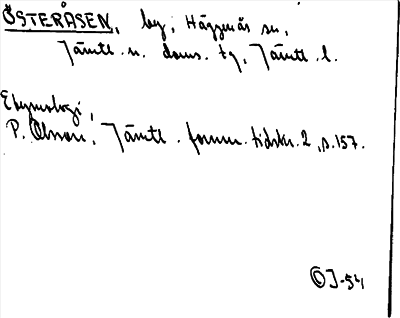 ÖSTERÅSEN, by, Häggenås sn,
Jämtl. n. doms. tg, Jämtl. l.
Etymologi,
P. Olsson, Jämtl. fornm. tidskr. 2, s. 157.
ÖJ-54